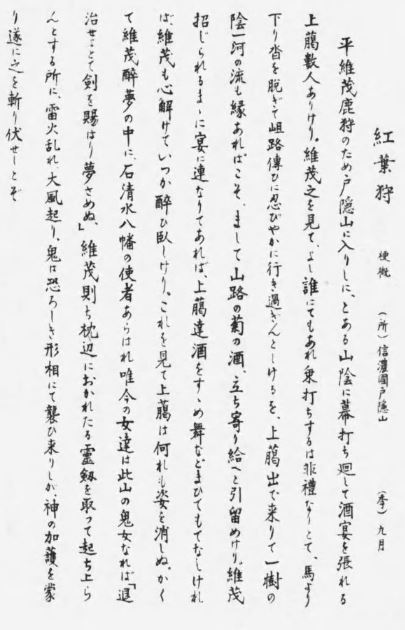 紅葉狩
梗概
(所)信濃國戸隠山
(季)九月
平維茂鹿狩のため戸隠山に入りしに、とある山陰に幕打ち廻して酒宴を張れる
上臈数人ありけり。維茂之を見て、よし誰にてもあれ乗打ちするは非禮なりとて、馬より
下り沓を脱ぎて岨路傳ひに忍びやかに行き過ぎんとしけるを、上臈出で来りて一樹の
陰一河の流も縁あればこそ、まして山路の菊の酒、立ち寄り給へと引留めけり。維茂
招じられるまゝに宴に連なりてあれば、上臈達酒をすゝめ舞などまひてもてなしけれ
ば、維茂も心解けていつか酔ひ臥しけり。これを見て上臈は何れも姿を消しぬ。かく
て維茂醉夢の中に、石清水八幡の使者あらはれ唯今の女達は此山の鬼女なれば「退
治せよとて剣を賜はり夢さめぬ」維茂則ち枕辺におかれたる霊劔を取って起ち上ら
んとする所に、雷火乱れ大風起り、鬼は恐ろしき形相にて襲ひ来りしが、神の加護を蒙
り遂に之を斬り伏せしとぞ